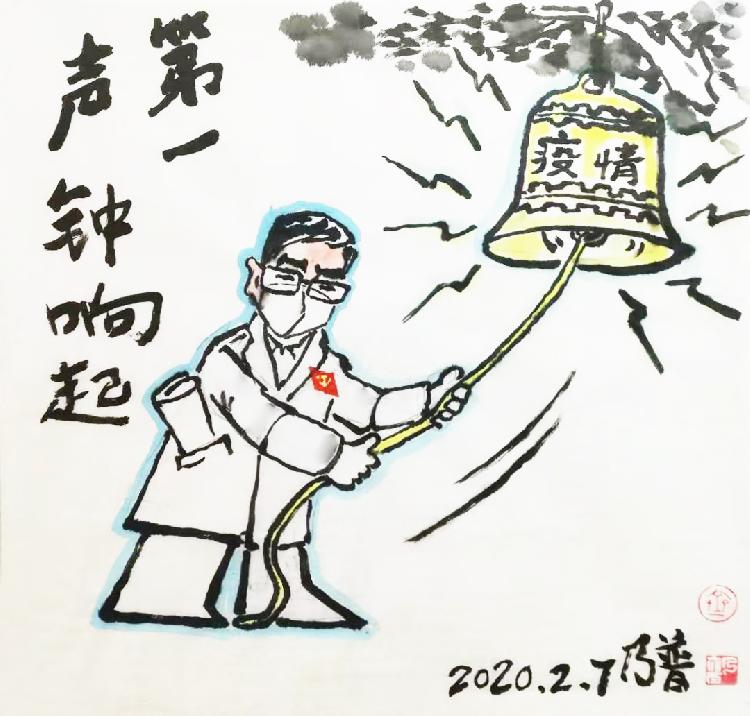 第一
声钟响起
疫情
2020.2.7乃普